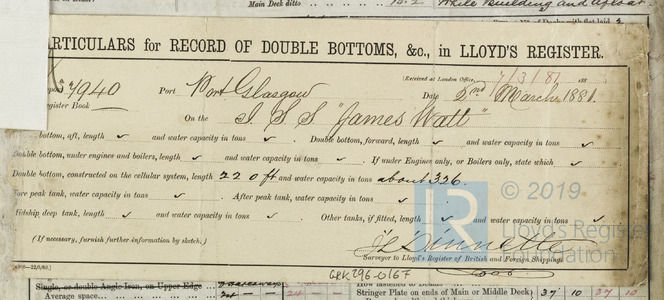 Main Deck ditto
While Building and afloat.
PARTICULARS for RECORD OF DOUBLE BOTTOMS, &c., in LLOYD'S REGISTER.
(Received at London Office, 7/3/81 188
7940 Port Port Glasgow Date 2nd March 1881.
Register Book
On the I S S "James Watt"
bottom, aft, length ✓ and water capacity in tons ✓ . Double bottom, forward, length ✓ and water capacity in tons ✓ .
Double bottom, under engines and boilers, length ✓ and water capacity in tons ✓ . If under Engines only, or Boilers only, state which ✓
Double bottom, constructed on the cellular system, length 220 ft and water capacity in tons about 326.
Fore peak tank, water capacity in tons ✓ . After peak tank, water capacity in tons ✓ .
Midship deep tank, length ✓ and water capacity in tons ✓ . Other tanks, if fitted, length ✓ and water capacity in tons ✓ .
(If necessary, furnish further information by sketch.)
Surveyor to Lloyd's Register of British and Foreign Shipping.
GRK296-0167
Single, or double Angle Iron, on Upper Edge
Average space
Stringer Plate on ends of Main or Middle Deck 37 10 37 10
LR © 2019
Lloyd's Register
Foundation